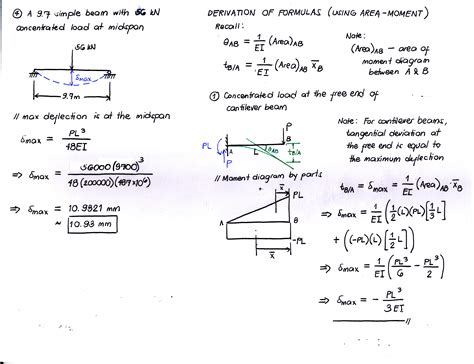 ④ A 9.7 simple beam with 56 kN
concentrated load at midspan
56 kN
δmax
9.7m
// max deflection is at the midspan
δmax = PL³ / 48EI
⇒ δmax = 56000(9700)³ / 48(200000)(487×10⁶)
⇒ δmax = 10.9321 mm
≈ 10.93 mm
DERIVATION OF FORMULAS (USING AREA-MOMENT)
Recall:
θAB = 1/EI (Area)AB
tB/A = 1/EI (Area)AB x̄B
Note:
(Area)AB – area of
moment diagram
between A & B
① Concentrated load at the free end of
cantilever beam
P
PL
A
B
L
θAB
tB/A
P
// Moment diagram by parts
x̄
PL
A
B
-PL
x̄
Note: For cantilever beams,
tangential deviation at
the free end is equal to
the maximum deflection
tB/A = δmax = 1/EI (Area)AB · x̄B
⇒ δmax = 1/EI [(1/2)(L)(PL)[1/3 L]
+ ((-PL)(L)[1/2 L]
⇒ δmax = 1/EI (PL³/6 - PL³/2)
⇒ δmax = - PL³ / 3EI
//